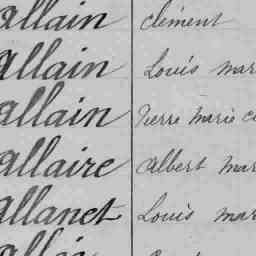 allain clément
allain Louis mar
allain Pierre marie c
allaire albert mar
allanet Louis mar